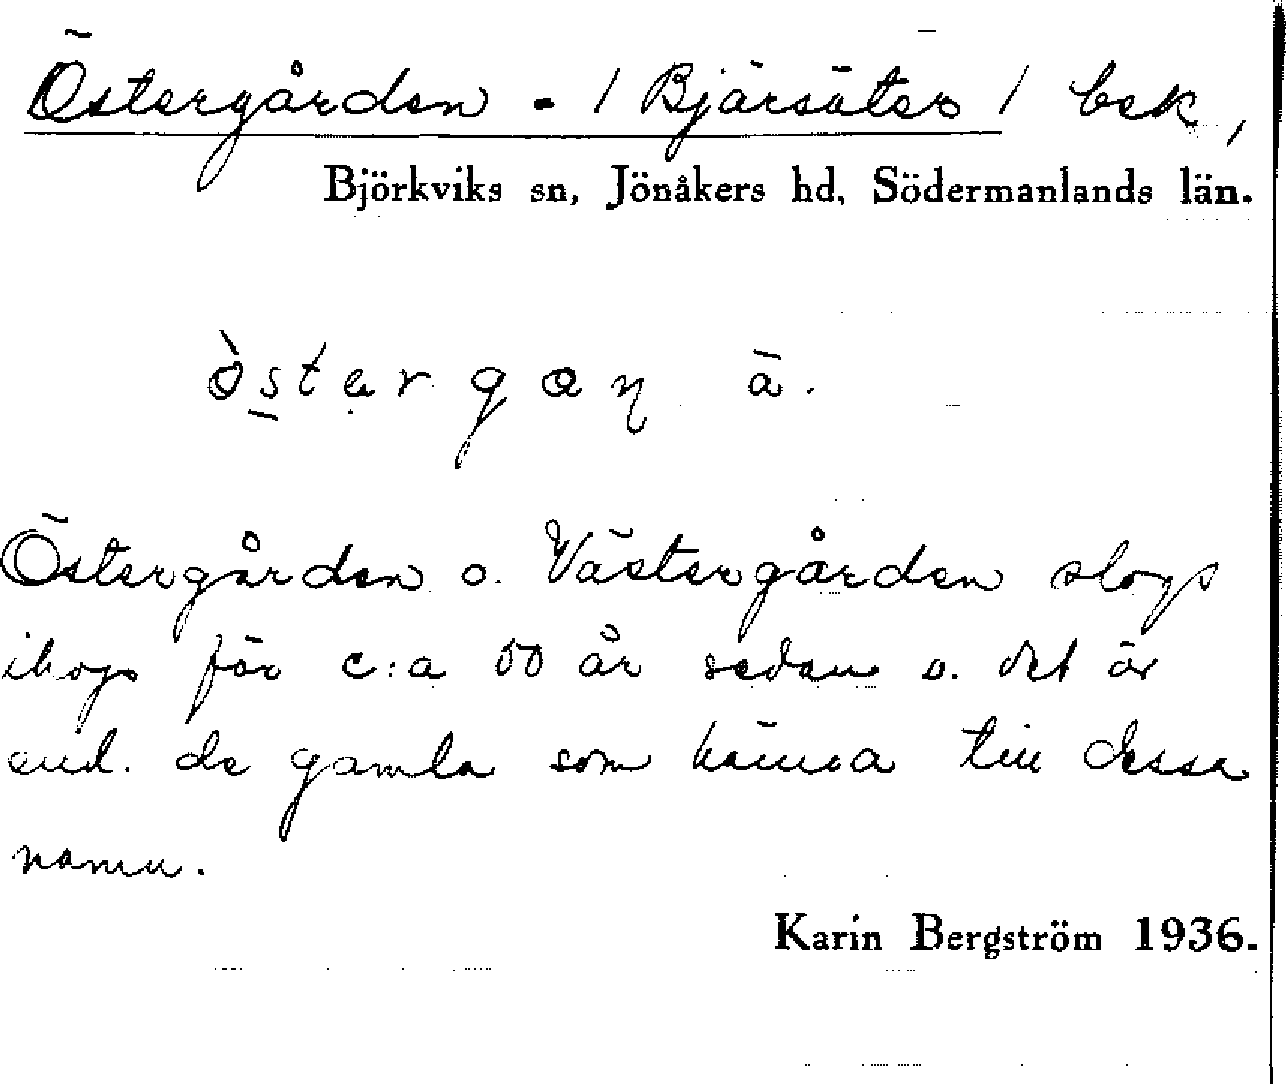 Östergården - / Bjärsäter / bsk,
Björkviks sn, Jönåkers hd, Södermanlands län.
ò̀stergaɳ ä.
Östergården o. Västergården slogs
ihop för c:a 50 år sedan o. det är
end. de gamla som känna till dessa
namn.
Karin Bergström 1936.